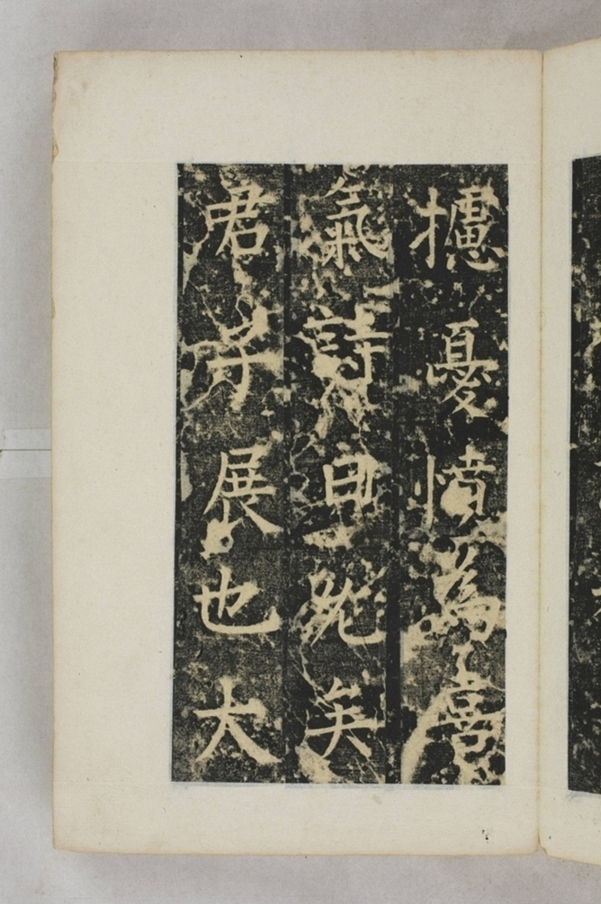 攄憂憤為喜
氣詩曰允矣
君子展也大